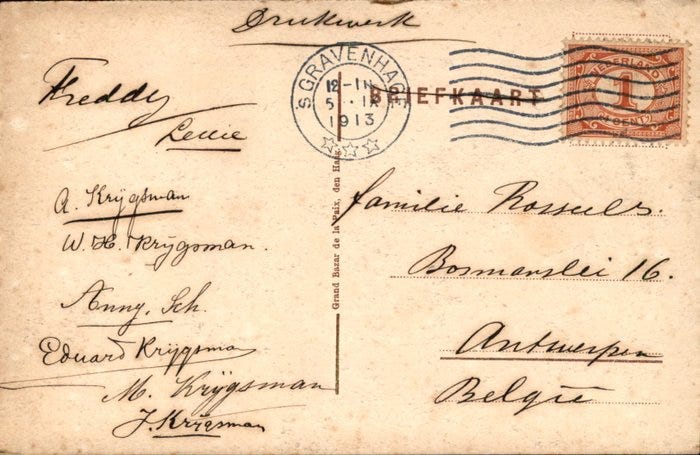 Drukwerk
'S GRAVENHAGE
12-1N
5.IX
1913
BRIEFKAART
NEDERLAND
1
CENT
Freddy
Leuie
A. Krijgsman
W. H. Krijgsman.
Anny. Sch.
Eduard Krijgsman
M. Krijgsman
J. Krijgsman
Grand Bazar de la Paix, den Haag
familie Rossuels.
Bosmanslei 16.
Antwerpen
België